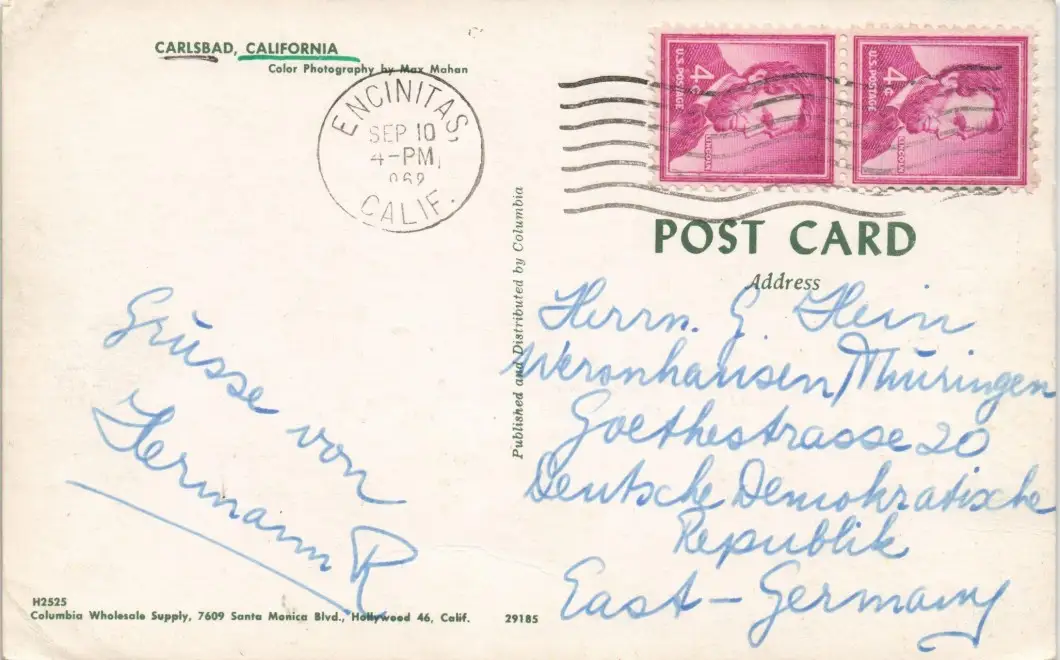 CARLSBAD, CALIFORNIA
Color Photography by Max Mahan
ENCINITAS,
SEP 10
4-PM
CALIF.
U.S. POSTAGE
4¢
LINCOLN
U.S. POSTAGE
4¢
LINCOLN
POST CARD
Address
Published and Distributed by Columbia
Grüsse von
Hermann R
Herrn. G. Hein
Wernshausen/Thüringen
Goethestrasse 20
Deutsche Demokratische
Republik
East-Germany
H2525
Columbia Wholesale Supply, 7609 Santa Monica Blvd., Hollywood 46, Calif.
29185